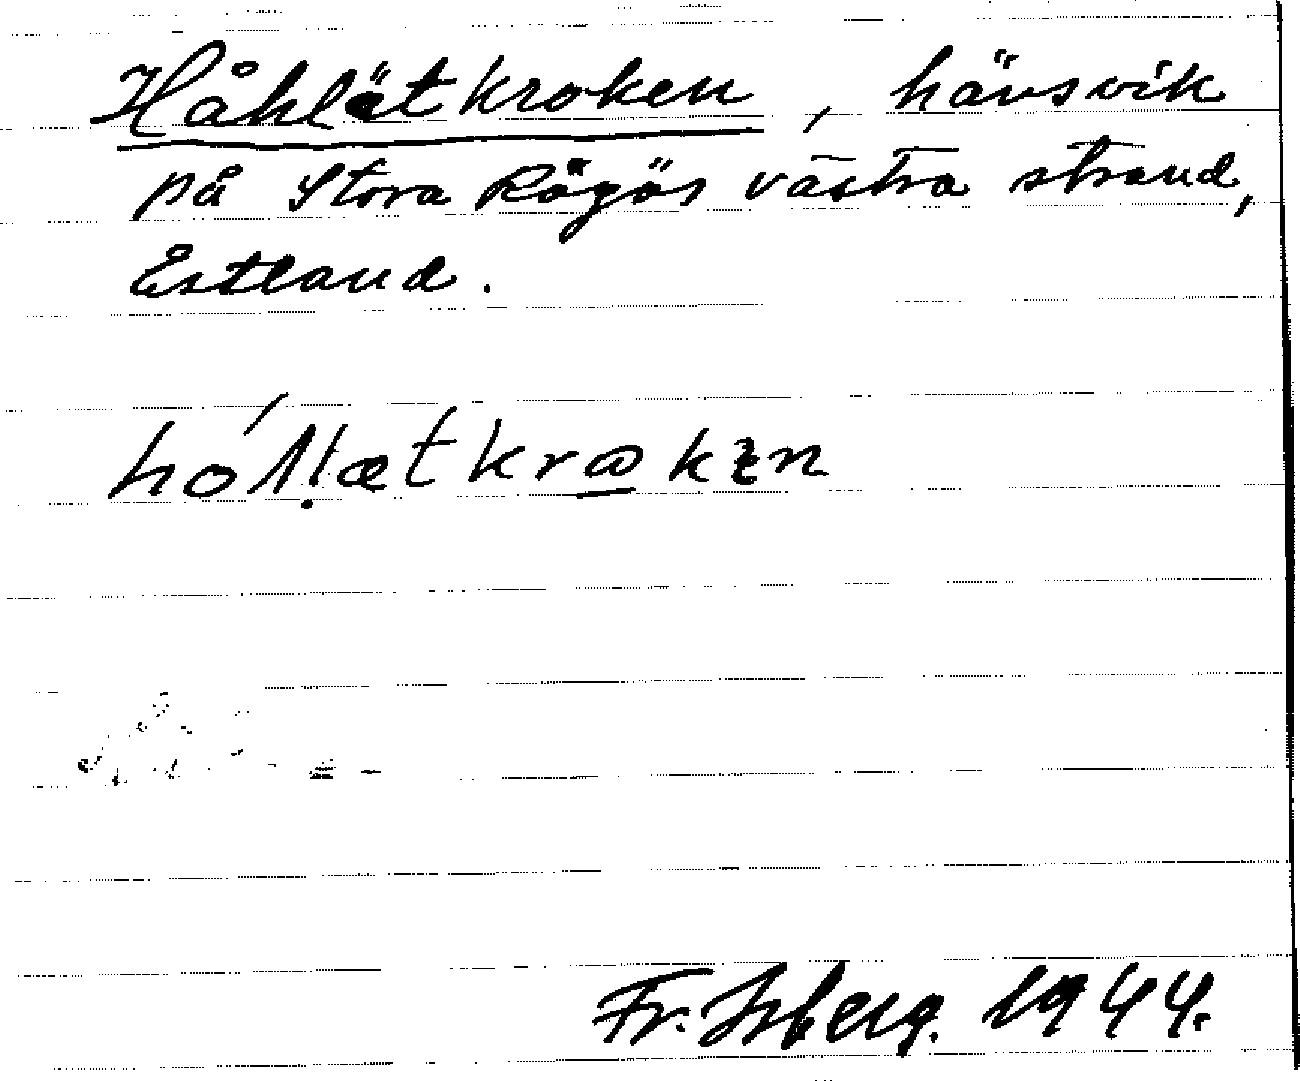 Håhlätkroken, hävsvik
på Stora Rågös västra strand,
Estland.
hó/l!ætkrɷken
Fr. Isberg. 1944.